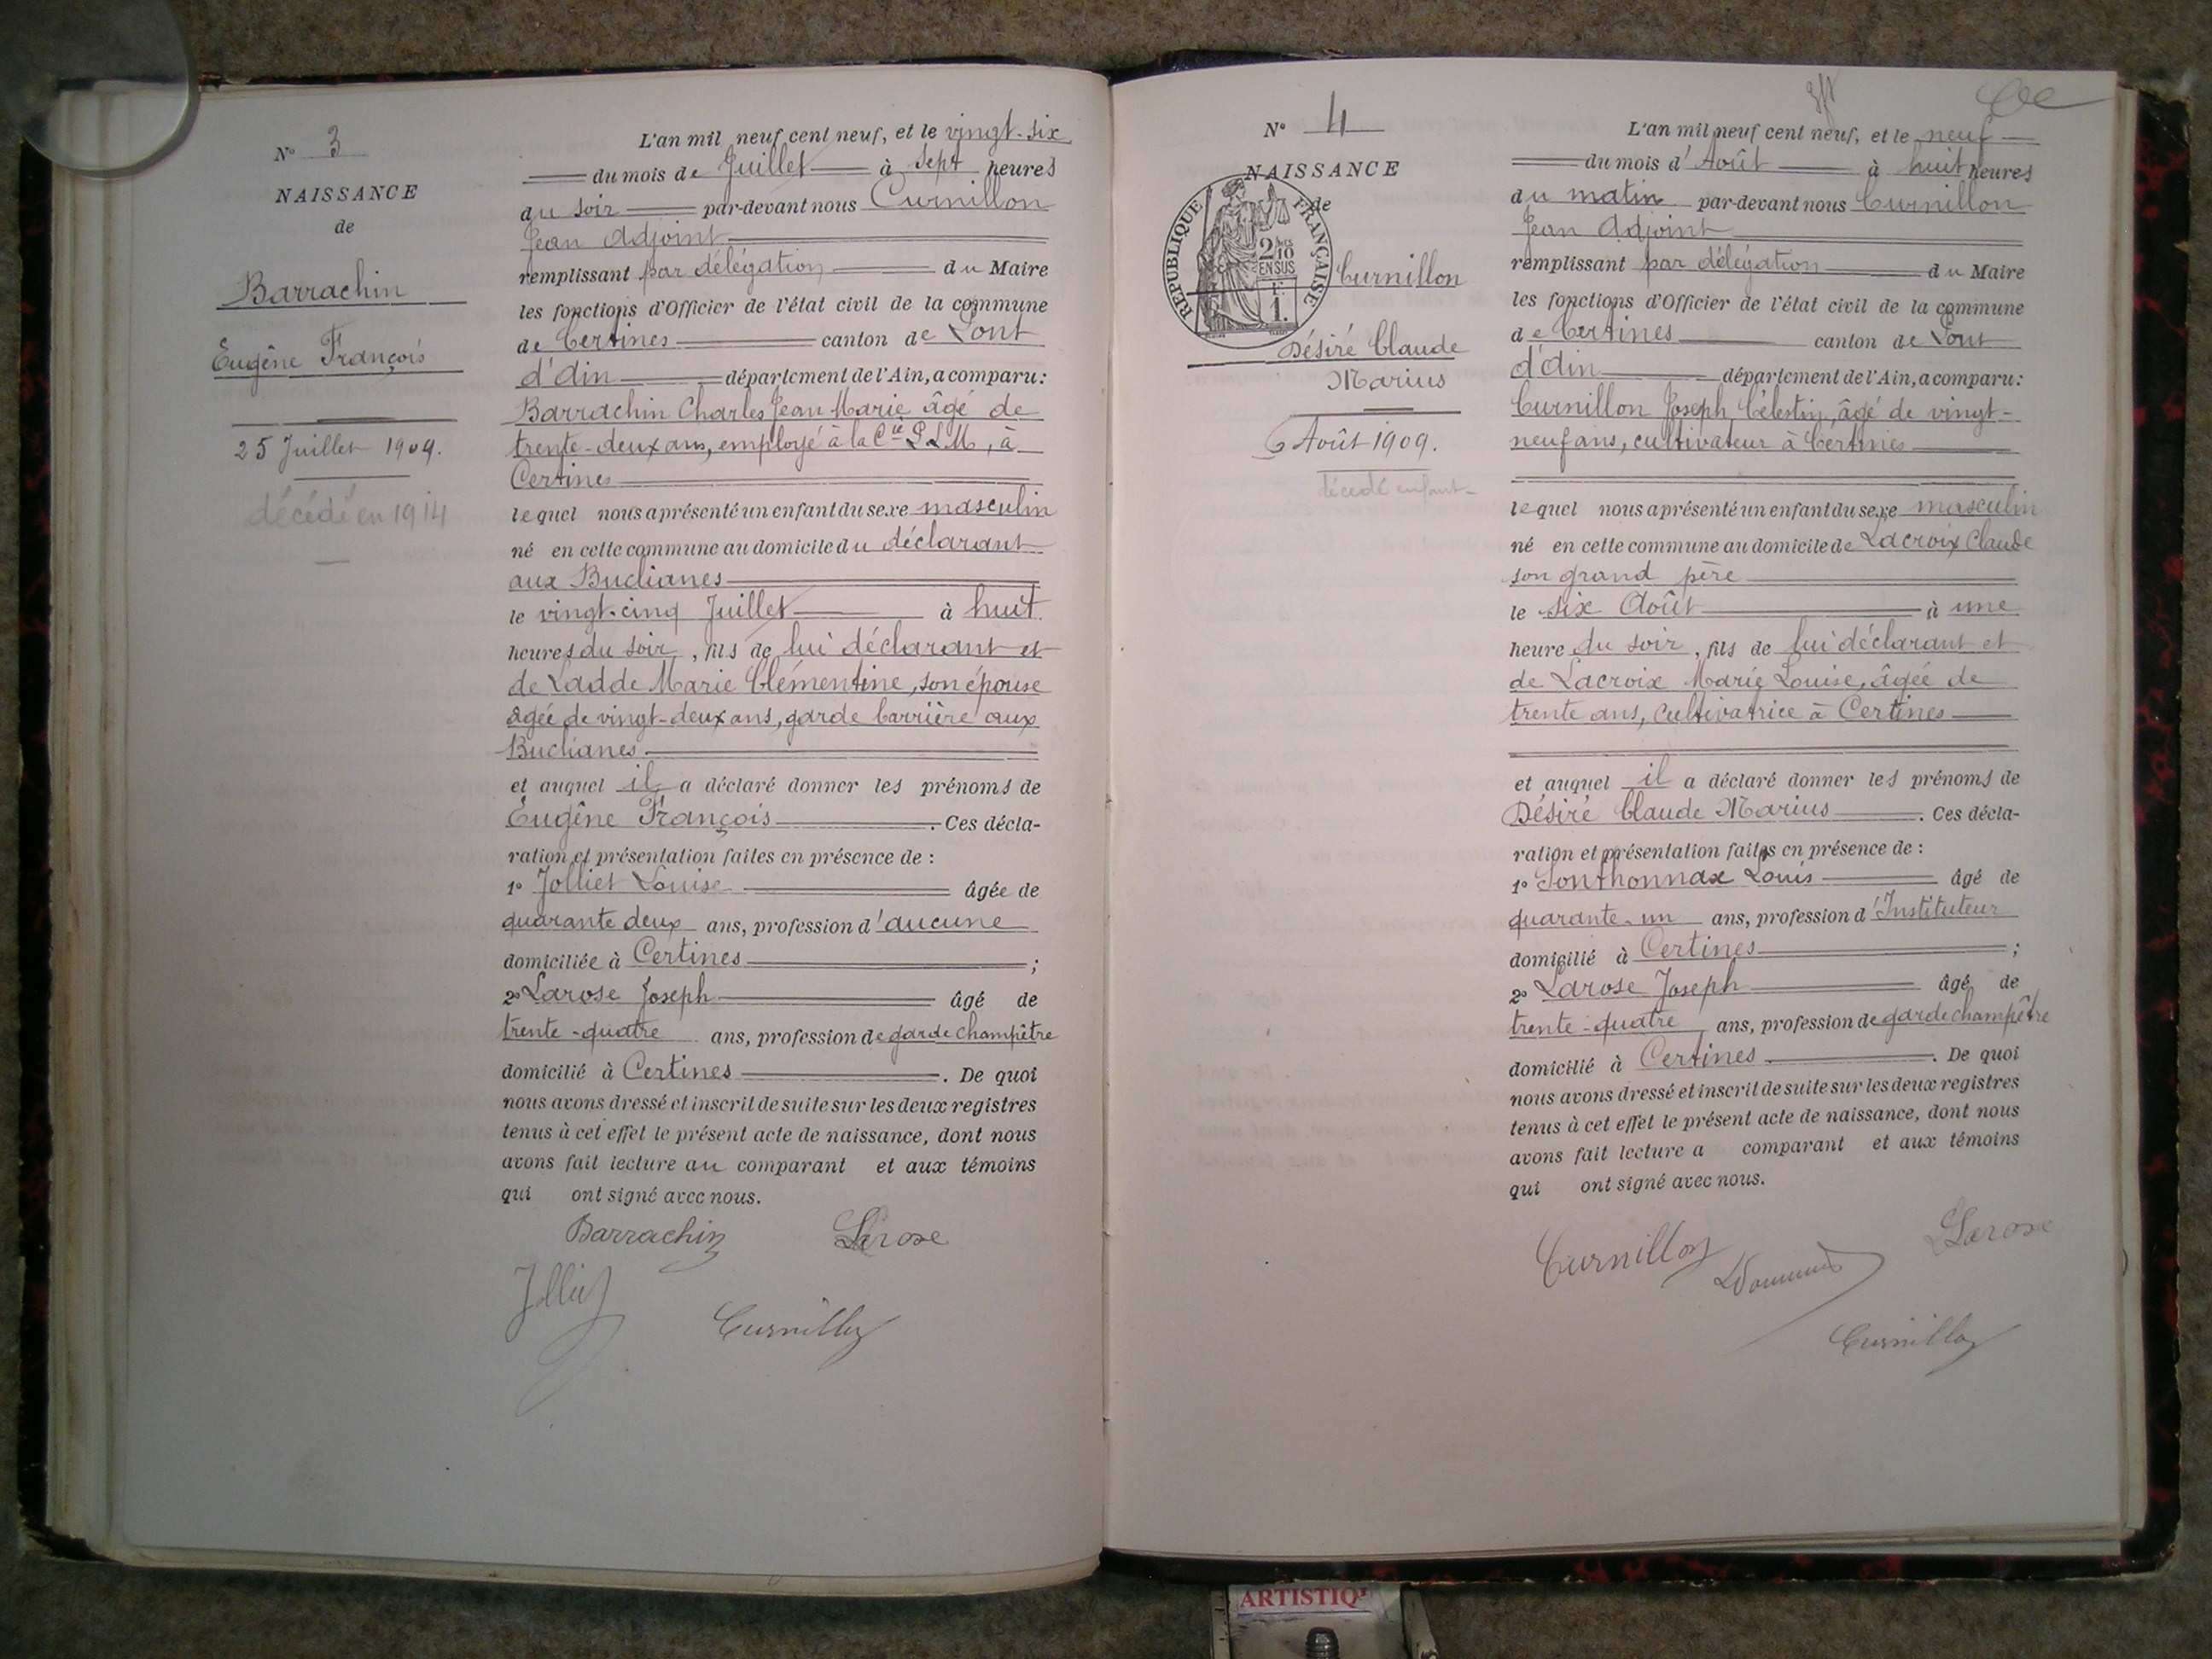 N° 3
NAISSANCE
de
Barrachin
Eugène François
25 Juillet 1909.
décédé en 1914
L'an mil neuf cent neuf, et le vingt-six
du mois de Juillet à sept heures
du soir par-devant nous Curnillon
Jean Adjoint
remplissant par délégation du Maire
les fonctions d'Officier de l'état civil de la commune
de Certines canton de Pont
d'Ain département de l'Ain, a comparu:
Barrachin Charles Jean Marie âgé de
trente-deux ans, employé à la Cie P.L.M, à
Certines
lequel nous a présenté un enfant du sexe masculin
né en cette commune au domicile du déclarant
aux Buclianes
le vingt-cinq Juillet à huit
heures du soir, fils de lui déclarant et
de Ladde Marie Clémentine, son épouse
âgée de vingt-deux ans, garde barrière aux
Buclianes.
et auquel il a déclaré donner les prénoms de
Eugène François. Ces décla-
ration et présentation faites en présence de :
1° Jolliet Louise âgée de
quarante deux ans, profession d'aucune
domiciliée à Certines ;
2° Larose Joseph âgé de
trente-quatre ans, profession de garde champêtre
domicilié à Certines. De quoi
nous avons dressé et inscrit de suite sur les deux registres
tenus à cet effet le présent acte de naissance, dont nous
avons fait lecture au comparant et aux témoins
qui ont signé avec nous.
Barrachin Larose
Jolliet
Curnillon
N° 4
NAISSANCE
de
RÉPUBLIQUE FRANÇAISE
2/10
EN SUS
1.
Curnillon
Désiré Claude
Marius
6 Août 1909.
décédé enfant
L'an mil neuf cent neuf, et le neuf
du mois d'Août à huit heures
du matin par-devant nous Curnillon
Jean Adjoint
remplissant par délégation du Maire
les fonctions d'Officier de l'état civil de la commune
de Certines canton de Pont
d'Ain département de l'Ain, a comparu:
Curnillon Joseph Célestin, âgé de vingt-
neuf ans, cultivateur à Certines
lequel nous a présenté un enfant du sexe masculin
né en cette commune au domicile de Lacroix Claude
son grand père
le six Août à une
heure du soir, fils de lui déclarant et
de Lacroix Marie Louise, âgée de
trente ans, cultivatrice à Certines
et auquel il a déclaré donner les prénoms de
Désiré Claude Marius. Ces décla-
ration et présentation faites en présence de :
1° Sonthonnax Louis âgé de
quarante-un ans, profession d'Instituteur
domicilié à Certines ;
2° Larose Joseph âgé de
trente-quatre ans, profession de garde champêtre
domicilié à Certines. De quoi
nous avons dressé et inscrit de suite sur les deux registres
tenus à cet effet le présent acte de naissance, dont nous
avons fait lecture a comparant et aux témoins
qui ont signé avec nous.
Curnillon Larose
Curnillon
ARTISTIQ